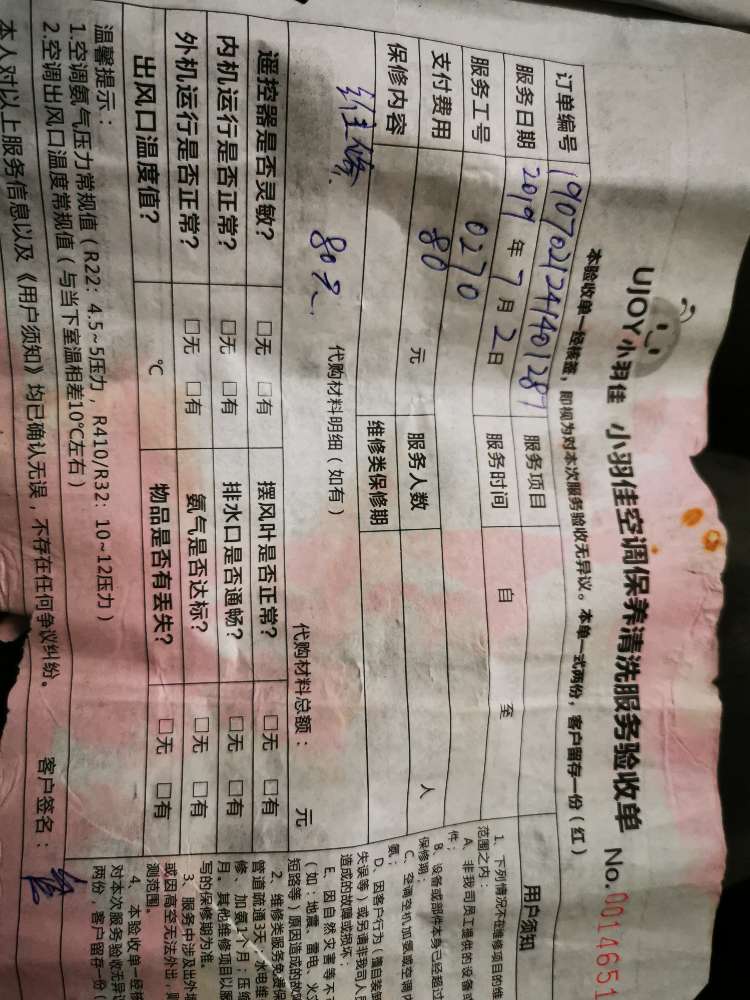 UJOY小羽佳 小羽佳空调保养清洗服务验收单 No.0014651
本验收单一经核签，即视为对本次服务验收无异议。本单一式两份，客户留存一份（红）
订单编号 190702124140128 服务项目
服务日期 2019年7月2日 服务时间 自 至
服务工号 0270
支付费用 80 元 服务人数 人
保修内容 维修类保修期
维修 80元 代购材料明细（如有） 代购材料总额： 元
遥控器是否灵敏？ □无 □有 摆风叶是否正常？ □无 □有
内机运行是否正常？ □无 □有 排水口是否通畅？ □无 □有
外机运行是否正常？ □无 □有 氨气是否达标？ □无 □有
出风口温度值？ ℃ 物品是否有丢失？ □无 □有
温馨提示：
1.空调氨气压力常规值（R22：4.5~5压力，R410/R32：10~12压力）
2.空调出风口温度常规值（与当下室温相差10℃左右）
本人对以上服务信息以及《用户须知》均已确认无误，不存在任何争议纠纷。 客户签名：
用户须知
1、下列情况不在维修项目的维
范围之内：
A、非我司员工提供的设备或
件；
B、设备或部件本身已经超过
保修期；
C、空调空机加氨或空调内
氨；
D、因客户行为（擅自装卸
失误等）或另请非我司人员
造成的故障或损坏；
E、因自然灾害等不可
（如：地震、雷电、火灾
短路等）原因造成的故障
2、维修类服务免费保
管道疏通3天；水电维
修、加氨1个月；压缩
月。其他维修项目以服
写的保修期为准。
3、服务中涉及出外墙
或因高空无法外出，则
测范围。
4、本验收单一经核
对本次服务验收无异议
两份，客户留存一份（